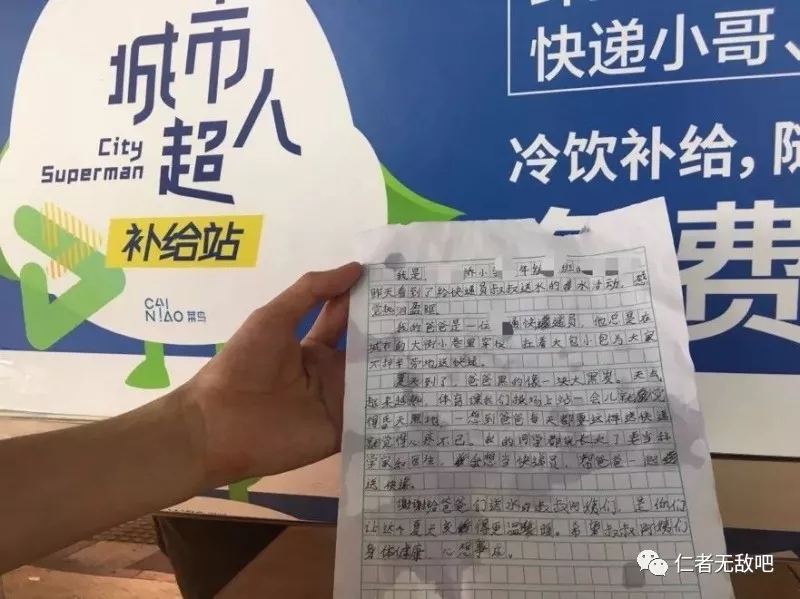 城市
超人
City
Superman
补给站
CAI
NIAO 菜鸟
快递小哥、
冷饮补给,
免费
我是 小 年级 班
昨天看到了给快递员叔叔送水的 水活动,感
觉挺温暖
我的爸爸是一位 通快递员,他总是在
城市的大街小巷里穿梭,拉着大包小包为大家
不辞辛劳地送快递。
夏天到了,爸爸黑的像一块大黑炭。天气
越来越热,体育课我们操场上站一会儿就感觉
得昏天黑地,想到爸爸每天都要这样送快递
就觉得心疼不已。我的同学都说长大了要当科
学家和医生,我想当快递员,帮爸爸一起
送快递。
谢谢给爸爸们送水的叔叔阿姨们,是你们
让这个夏天变得更温暖。希望叔叔阿姨们
身体健康,心想事成。
仁者无敌吧